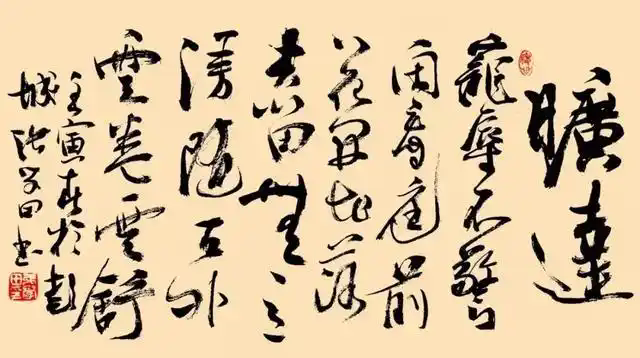 曠達
寵辱不驚
閑看庭前
花開花落
去留無意
漫隨天外
雲卷雲舒
壬寅春於彭
城張学田书